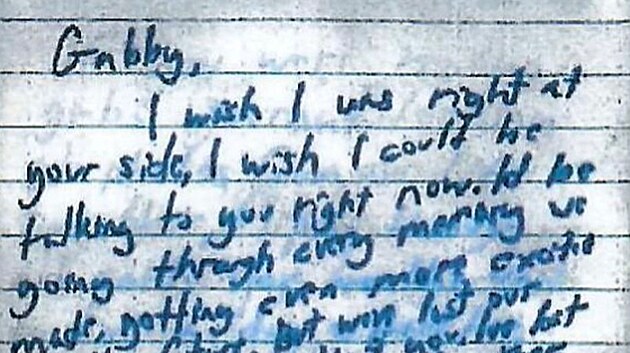 Gabby,
I wish I was right at
your side, I wish I could be
talking to you right now. Id be
going through every memory we
made, getting even more excited
but
lost